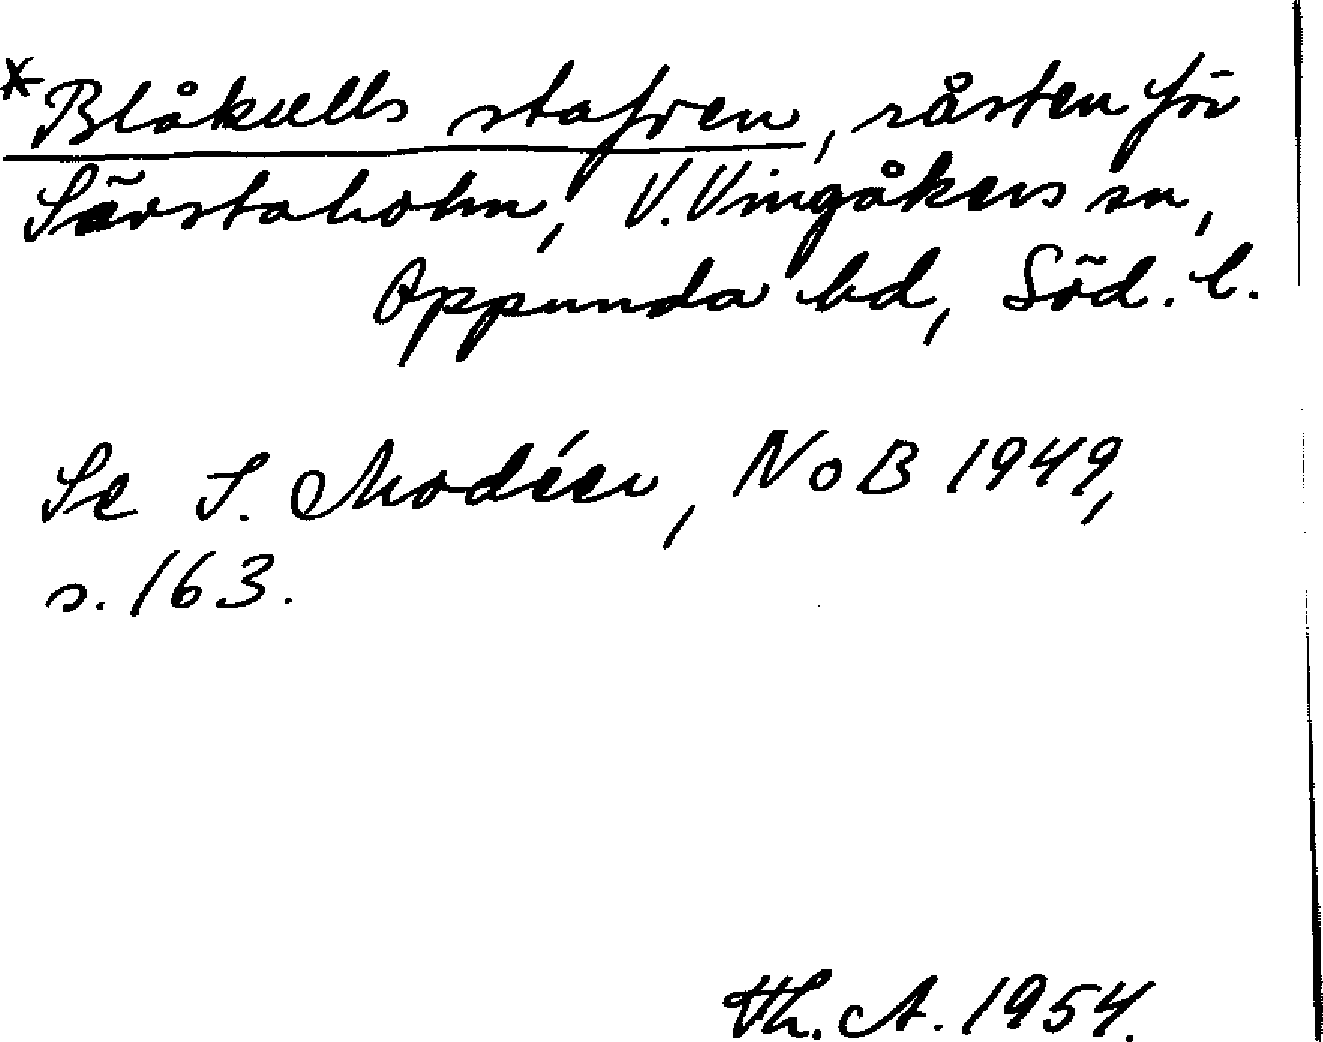 *Blåkulls stafren, råsten för
Sävstaholm, V. Vingåkers sn,
Oppunda hd, Söd. l.
Se I. Modéer, NoB 1949,
s. 163.
Th. A. 1954.